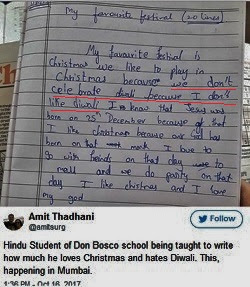 My favourite festival (20 lines)
My favourite festival is
Christmas we like to play in
Christmas because we don't
celebrate diwali because I don't
like diwali I know that Jesus was
born on 25th December because of that
I like christmas because our God has
born on that I love to
go with friends on that day we to
mall and we do party on that
day I like chistmas and I love
my god
Amit Thadhani
@amitsurg
Follow
Hindu Student of Don Bosco school being taught to write
how much he loves Christmas and hates Diwali. This,
happening in Mumbai.
1:36 PM - Oct 16, 2017